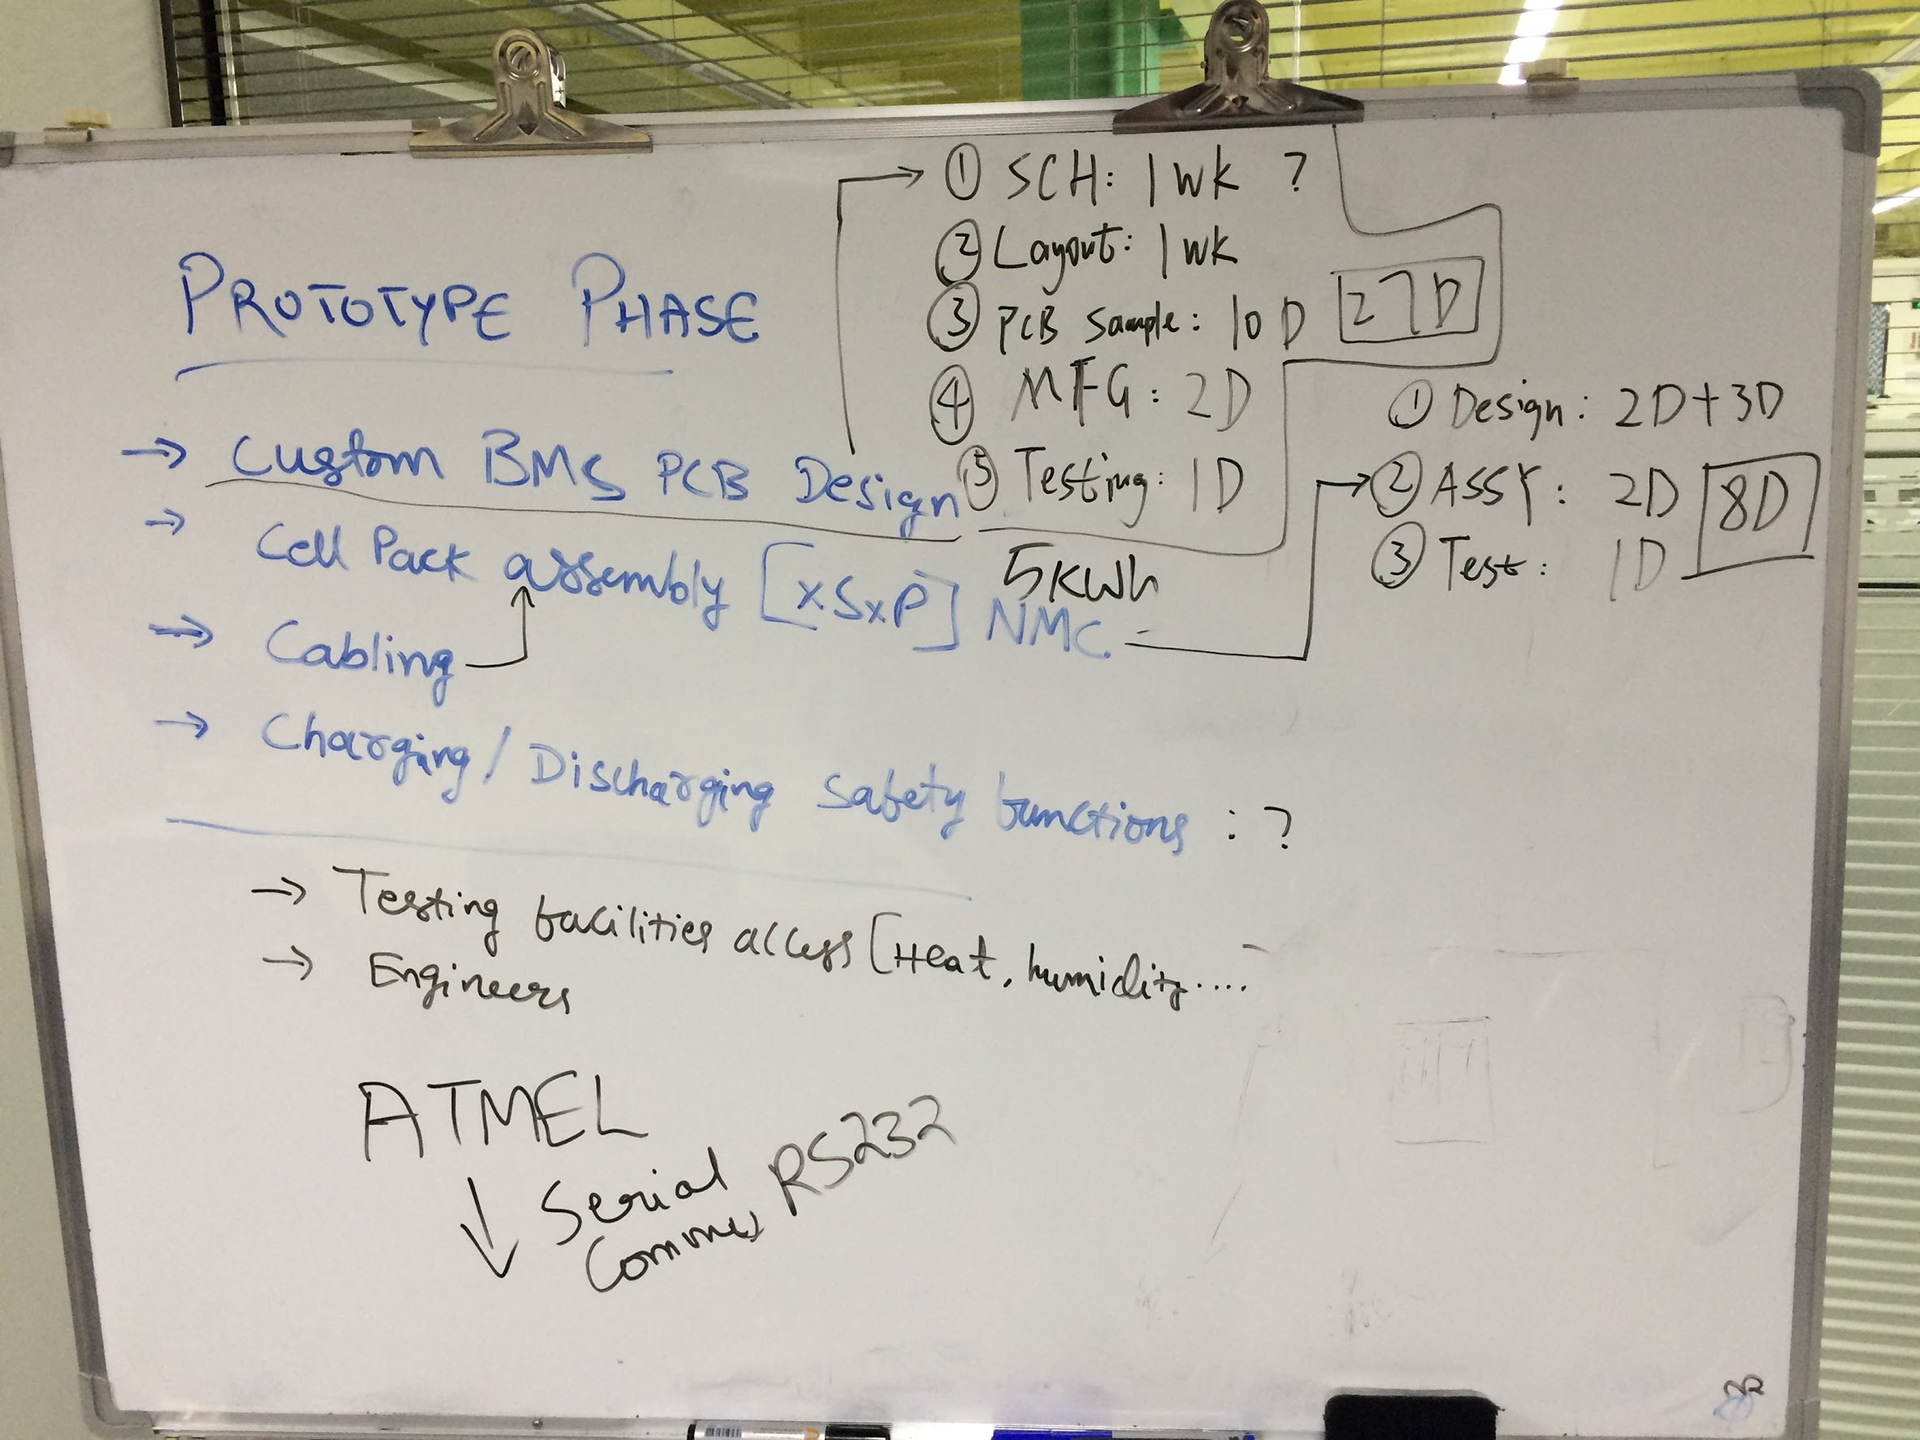 PROTOTYPE PHASE
→ Custom BMS PCB Design
→ Cell Pack assembly [xSxP] NMC
5KWh
→ Cabling
→ Charging/Discharging safety functions : ?
→ Testing facilities access [Heat, humidity....
→ Engineers
ATMEL
↓ Serial Comms RS232
→ ① SCH: 1 wk ?
② Layout: 1 wk
③ PCB Sample: 10 D
④ MFG: 2D
⑤ Testing: 1D
27D
① Design: 2D+3D
→ ② ASSY: 2D
③ Test: 1D
8D